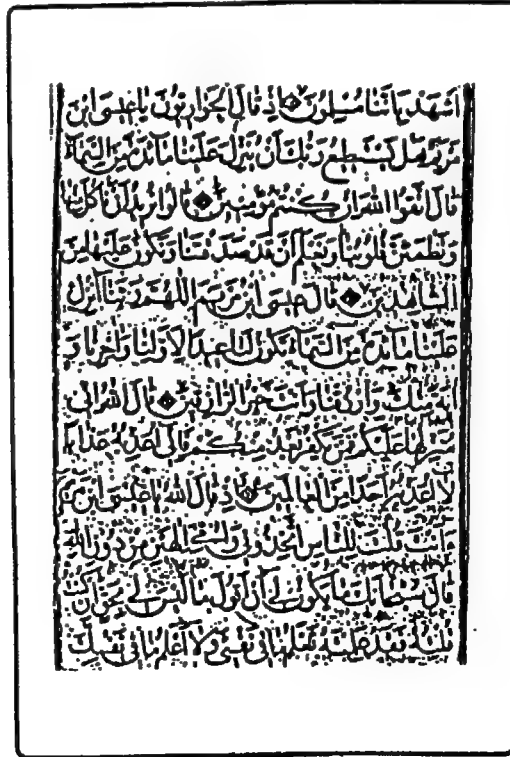 اشهد بأننا مسلمون اذ قال الحواريون يا عيسى ابن
مريم هل يستطيع ربك أن ينزل علينا مائدة من السماء
قال اتقوا الله ان كنتم مؤمنين قالوا نريد أن نأكل منها
وتطمئن قلوبنا ونعلم أن قد صدقتنا ونكون عليها من
الشاهدين قال عيسى ابن مريم اللهم ربنا أنزل
علينا مائدة من السماء تكون لنا عيدا لاولنا وآخرنا و
آية منك وارزقنا وأنت خير الرازقين قال الله اني
منزلها عليكم فمن يكفر بعد منكم فاني أعذبه عذابا
لا أعذبه أحدا من العالمين واذ قال الله يا عيسى ابن مريم
ءانت قلت للناس اتخذوني وأمي الهين من دون الله
قال سبحانك ما يكون لي أن أقول ما ليس لي بحق ان كنت
قلته فقد علمته تعلم ما في نفسي ولا أعلم ما في نفسك